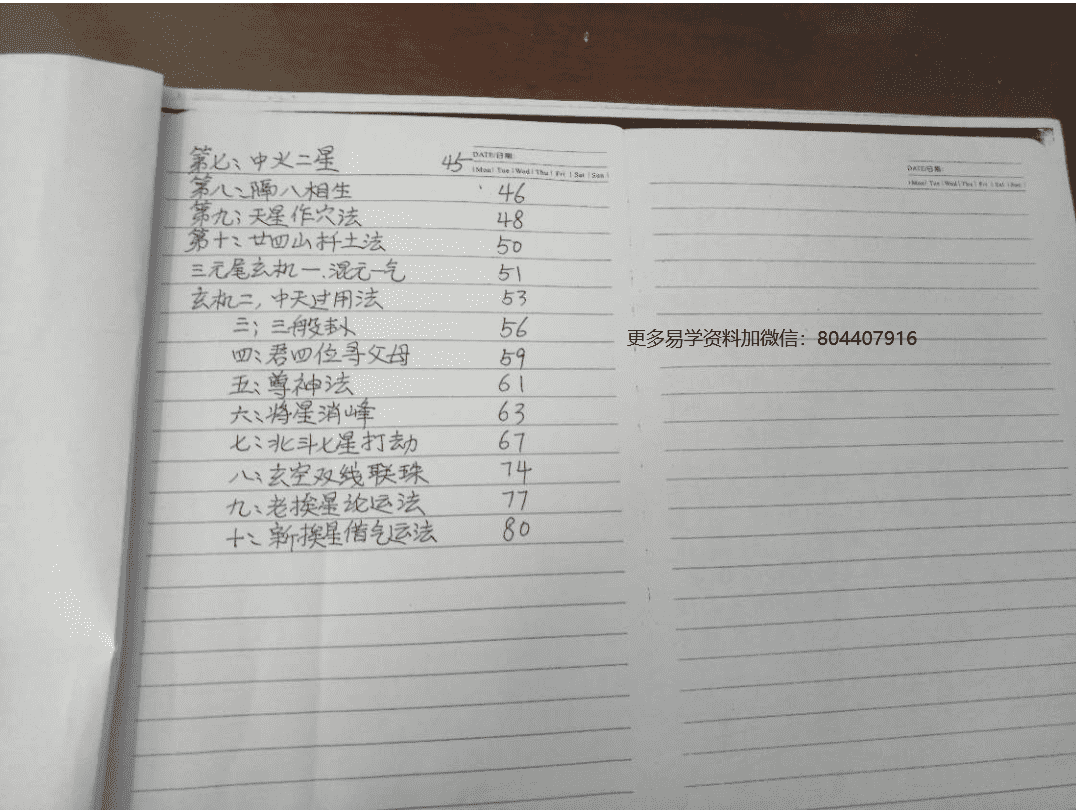 第七、中火二星 45
第八、隔八相生 46
第九、天星作穴法 48
第十、廿四山扦土法 50
三元尾玄机一、混元一气 51
玄机二, 中天过用法 53
三; 三般卦 56
四、君四位寻父母 59
五、尊神法 61
六、将星消峰 63
七、北斗七星打劫 67
八、玄空双线联珠 74
九、老挨星论运法 77
十、新挨星借气运法 80
DATE/日期:
Mon Tue Wed Thu Fri Sat Sun
DATE/日期:
Mon Tue Wed Thu Fri Sat Sun
更多易学资料加微信：804407916